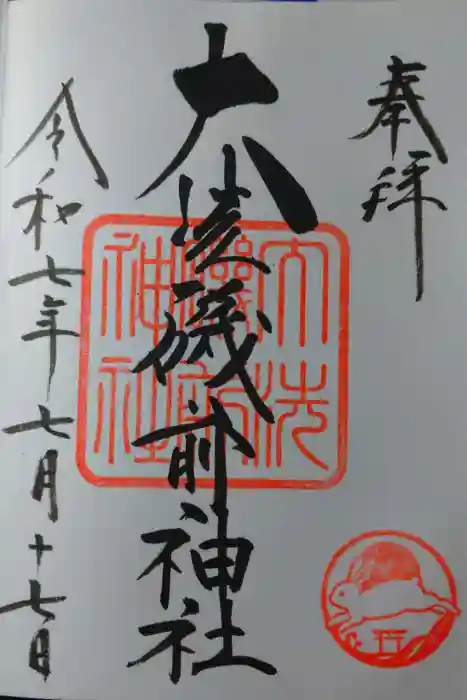 奉拝
大洗磯前神社
令和七年七月十七日
大洗
磯前
神社